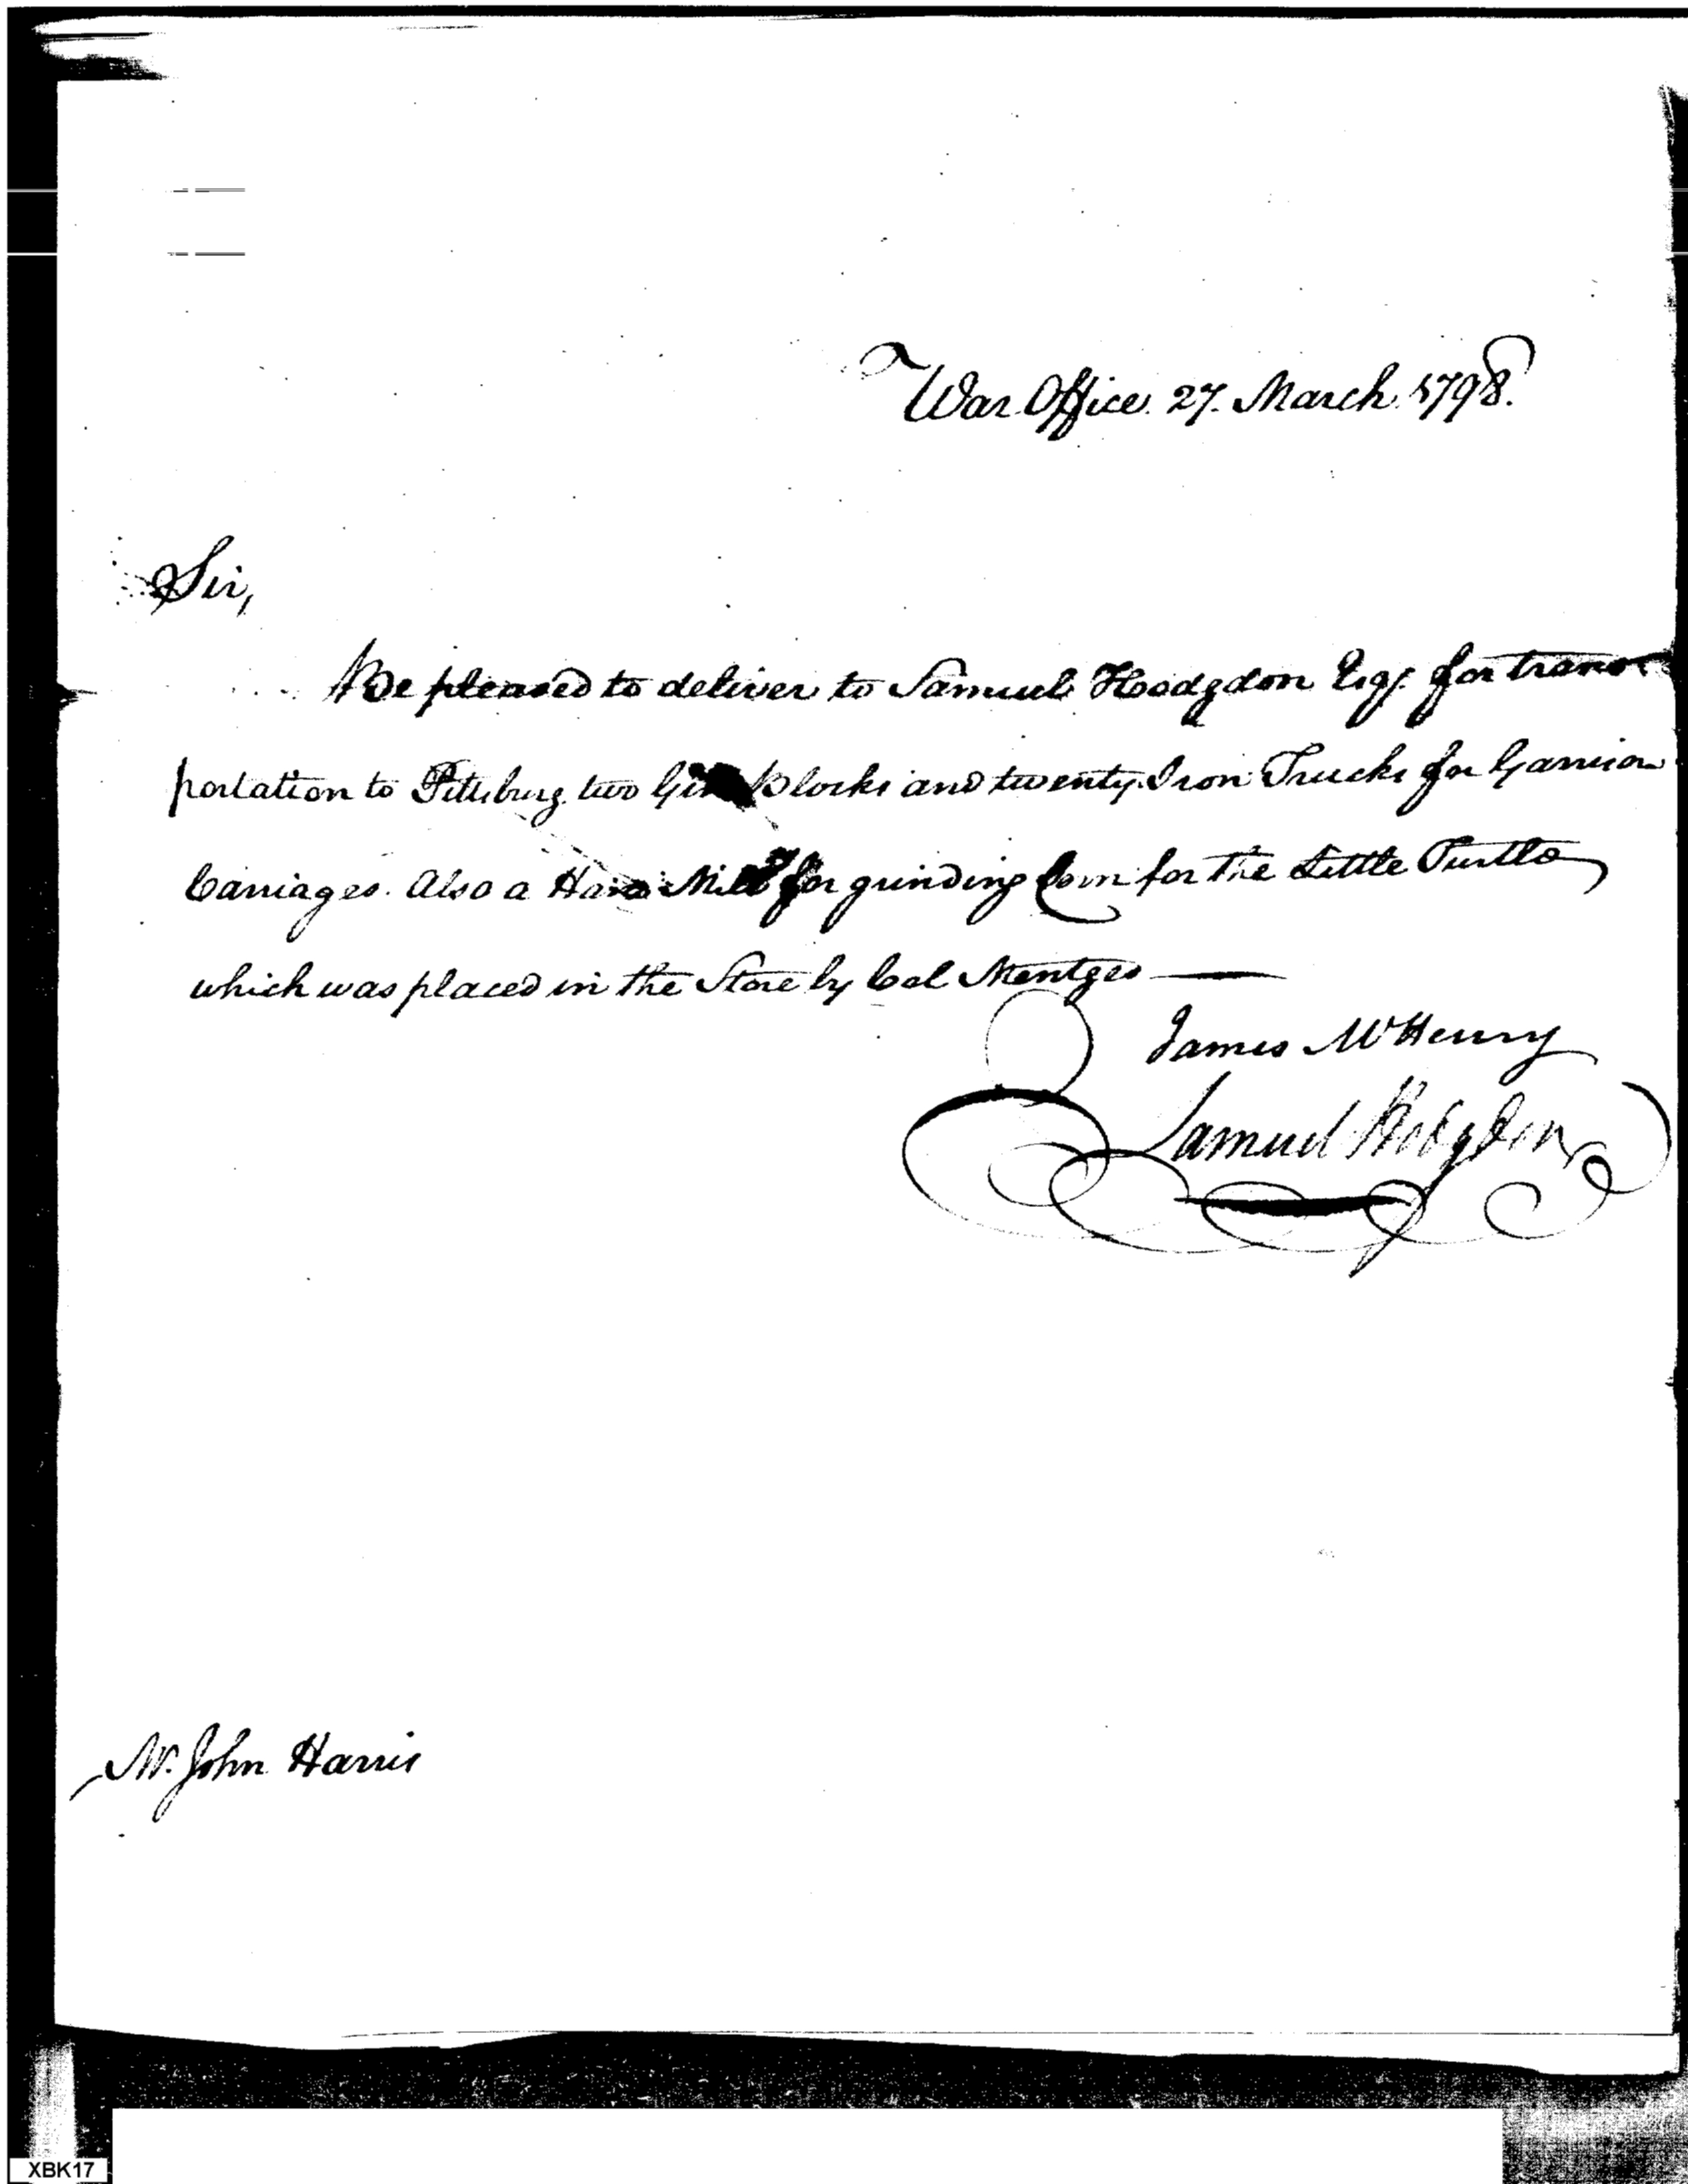 War Office. 27. March. 1798.
Sir,
Be pleased to deliver to Samuel Hodgdon Esqr. for trans-
portation to Pittsburg two Gin Blocks and twenty Iron Trucks for Garrison
Carriages. Also a Hand Mill for grinding Corn for the Little Turtle
which was placed in the Store by Col Mentges
James McHenry
Samuel Hodgdon
Mr. John Harris
XBK17